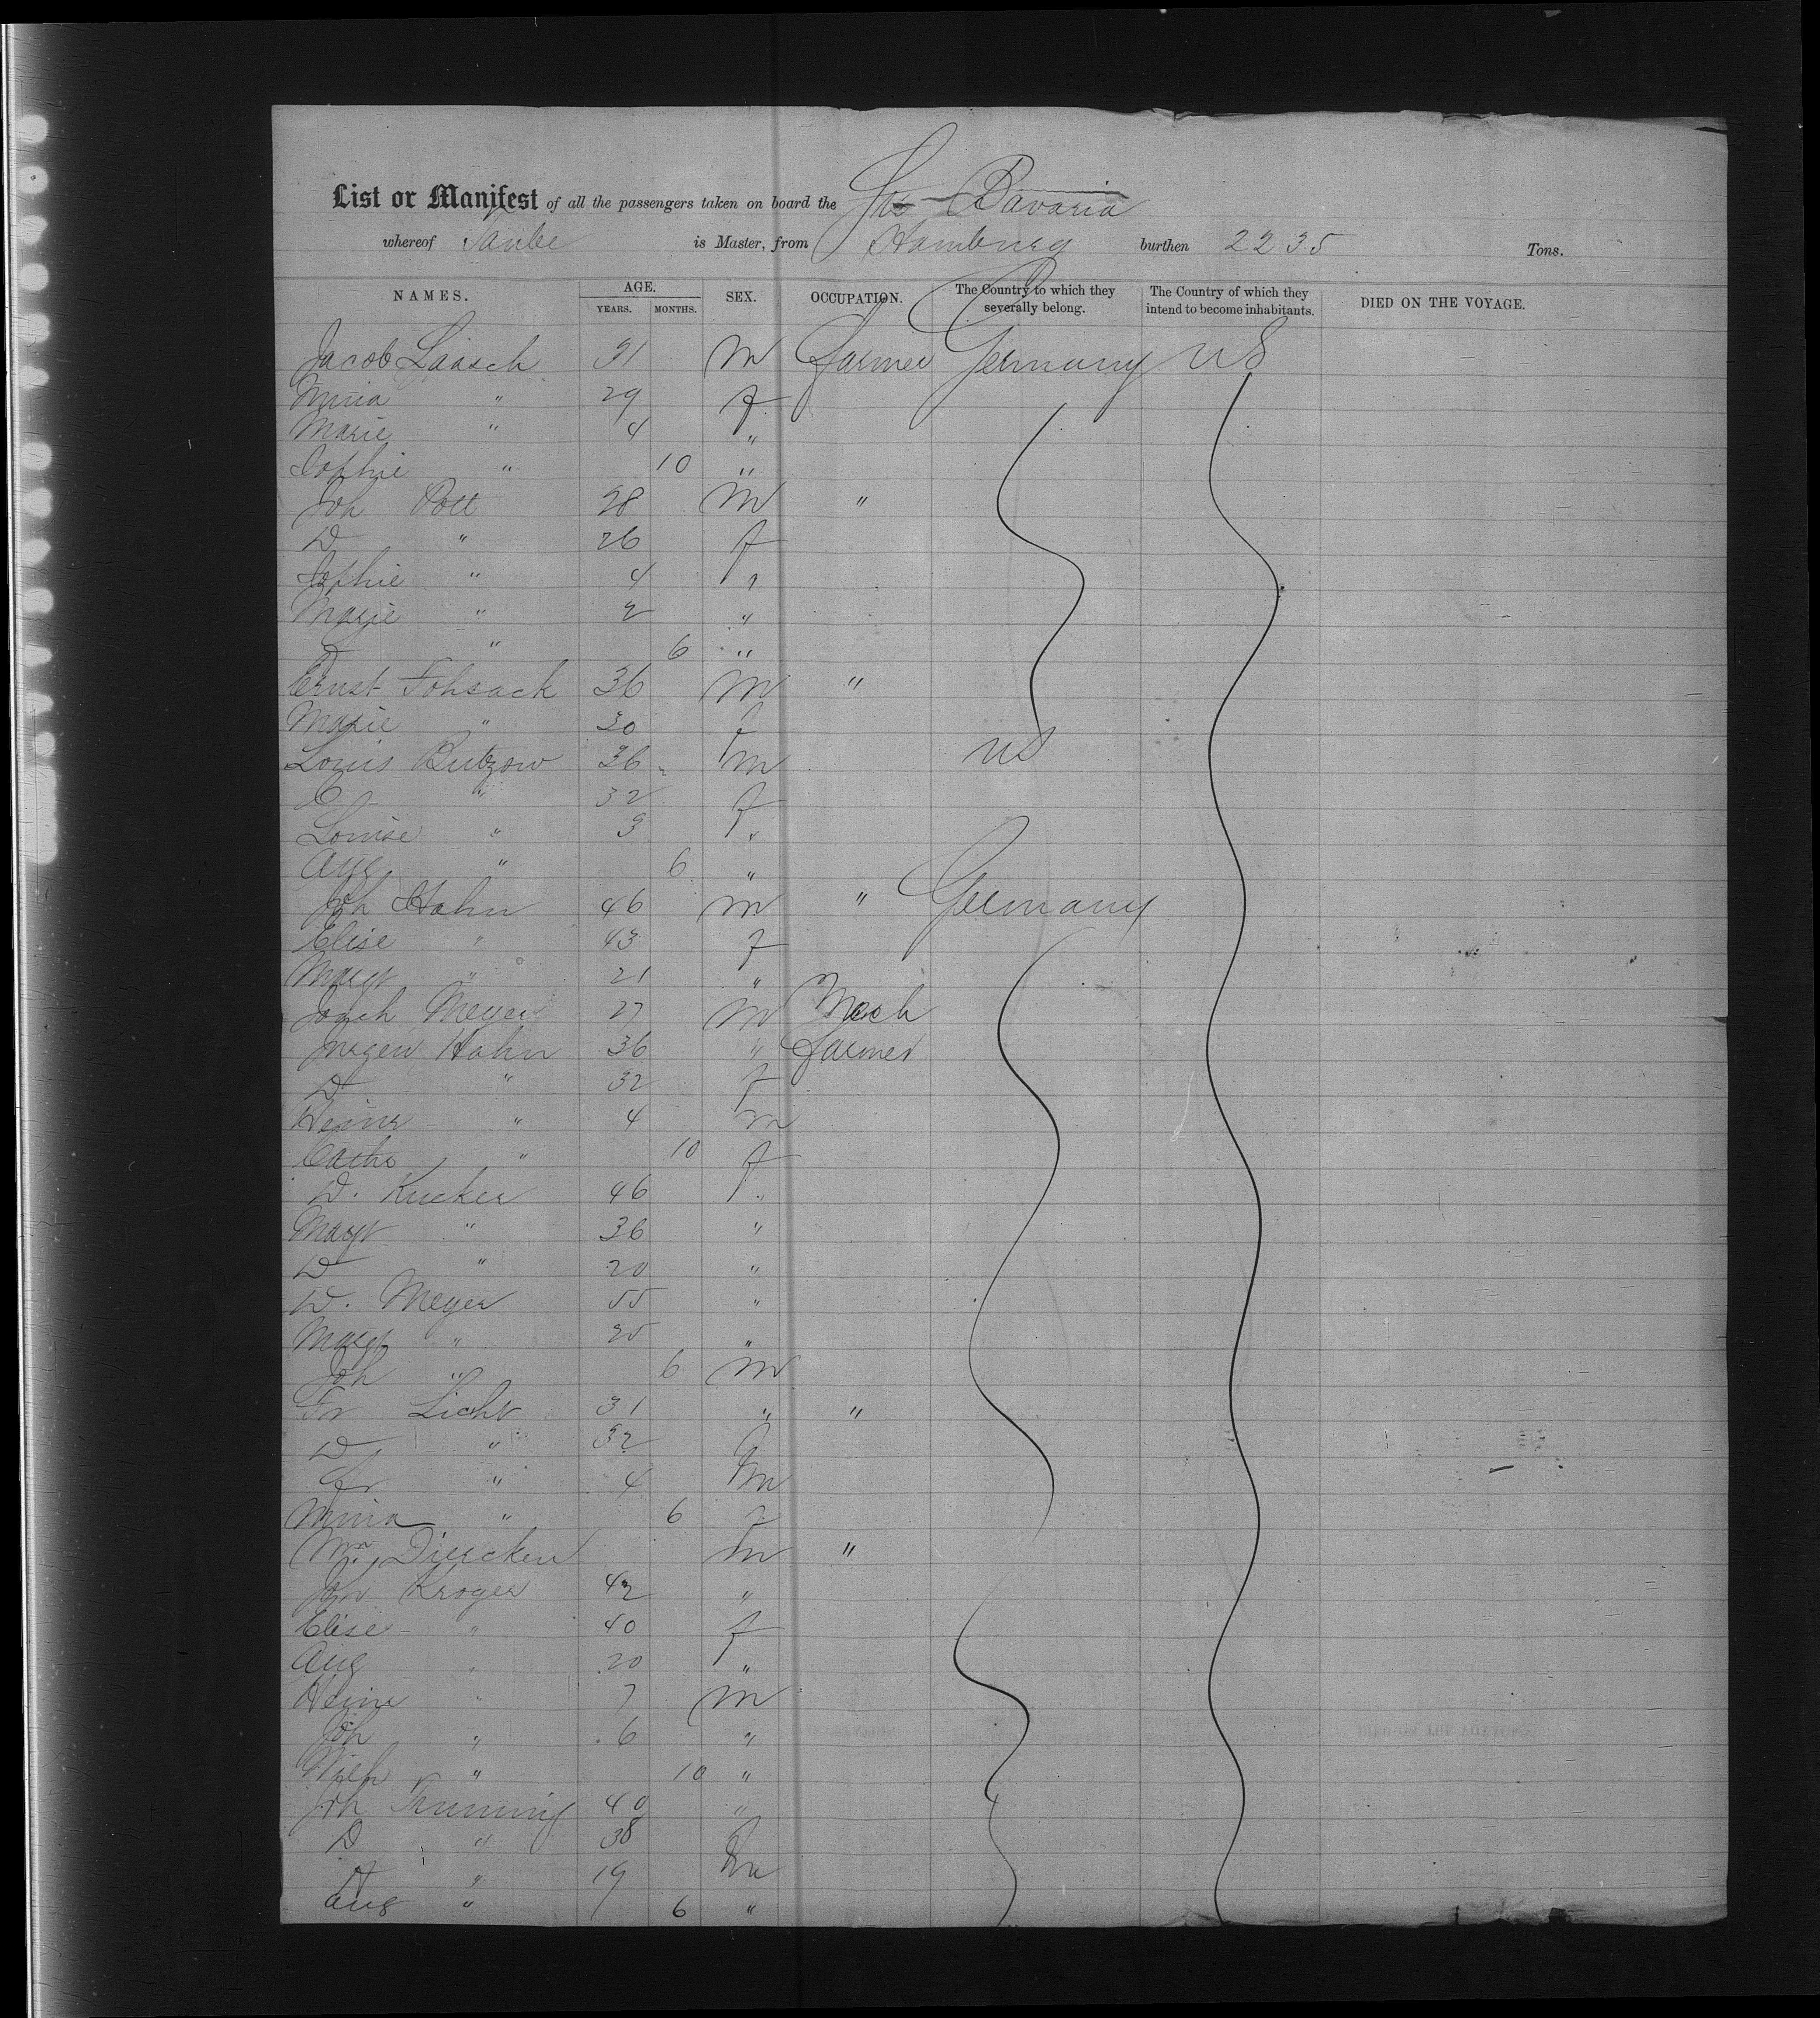 List or Manifest of all the passengers taken on board the Bavaria
whereof Taube is Master, from Hamburg burthen 2235 Tons.
NAMES. AGE. YEARS. MONTHS. SEX. OCCUPATION. The Country to which they severally belong. The Country of which they intend to become inhabitants. DIED ON THE VOYAGE.
Jacob Laasch 31 M Farmer Germany US
Mina " 29 f
Marie " 4 "
Sophie " 10 "
Joh Pott 28 M "
D " 26 f
Sophie " 4 "
Marie " 2 "
" 6 "
Ernst Fohsack 36 M "
Marie " 30 f
Louis Butzow 36 m US
" 32 f
Louise " 3 "
Aug " 6 "
Joh Hahn 46 m " Germany
Elise " 43 f
Margt " 21 "
Joach Meyer 27 M Mech
Jurgen Hahn 36 " Farmer
D " 32 f
Heinr " 4 m
Cathe " 10 f
D. Kucker 46 "
Margt " 36 "
D " 20 "
D. Meyer 55 "
Margt " 25 "
Joh " 6 M
Fr Licht 31 " "
D " 32 f
Fr " 4 m
Mina " 6 f
Diecken m "
Joh Kroger 42 "
Elise " 40 f
Aug " 20 "
Heinr " 7 m
Joh " 6 "
" 10 "
Joh 40 "
D " 38 f
" 19 m
Aug " 6 "